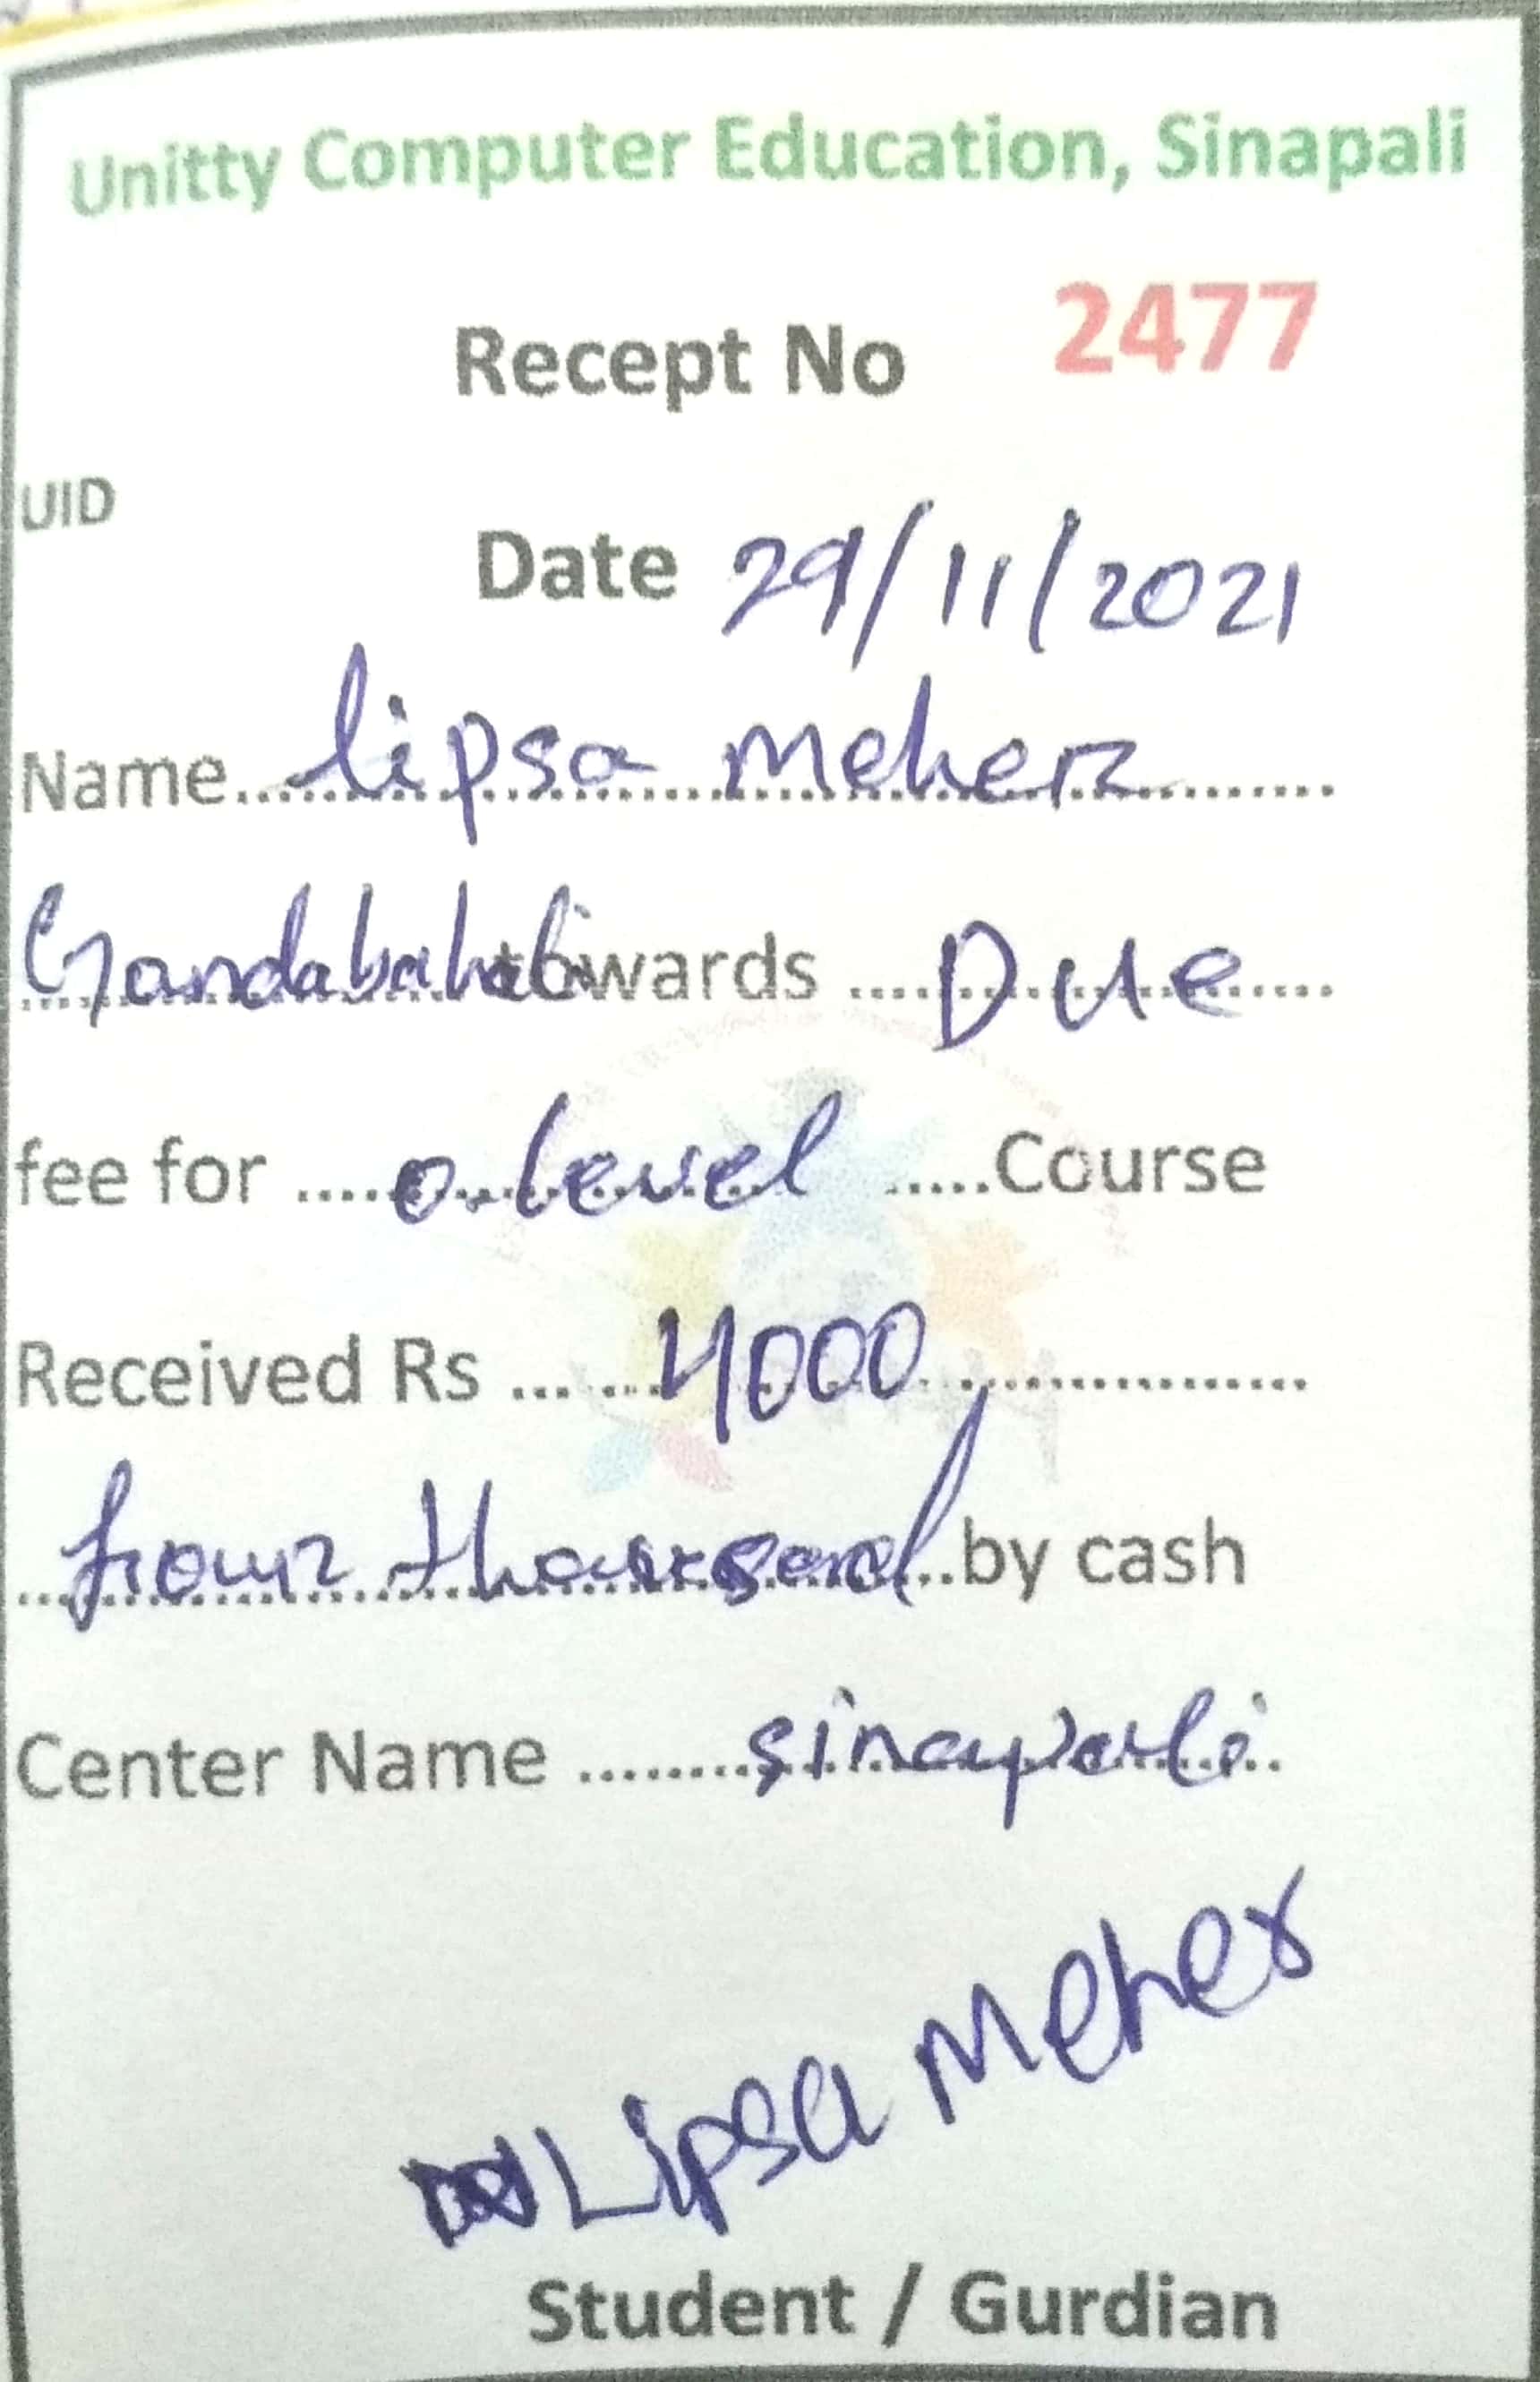 Unitty Computer Education, Sinapali
Recept No 2477
UID
Date 29/11/2021
Name lipsa meher
Gandabahali towards Due
fee for o.level Course
Received Rs 4000
four thousand by cash
Center Name sinapali
Lipsa Meher
Student / Gurdian